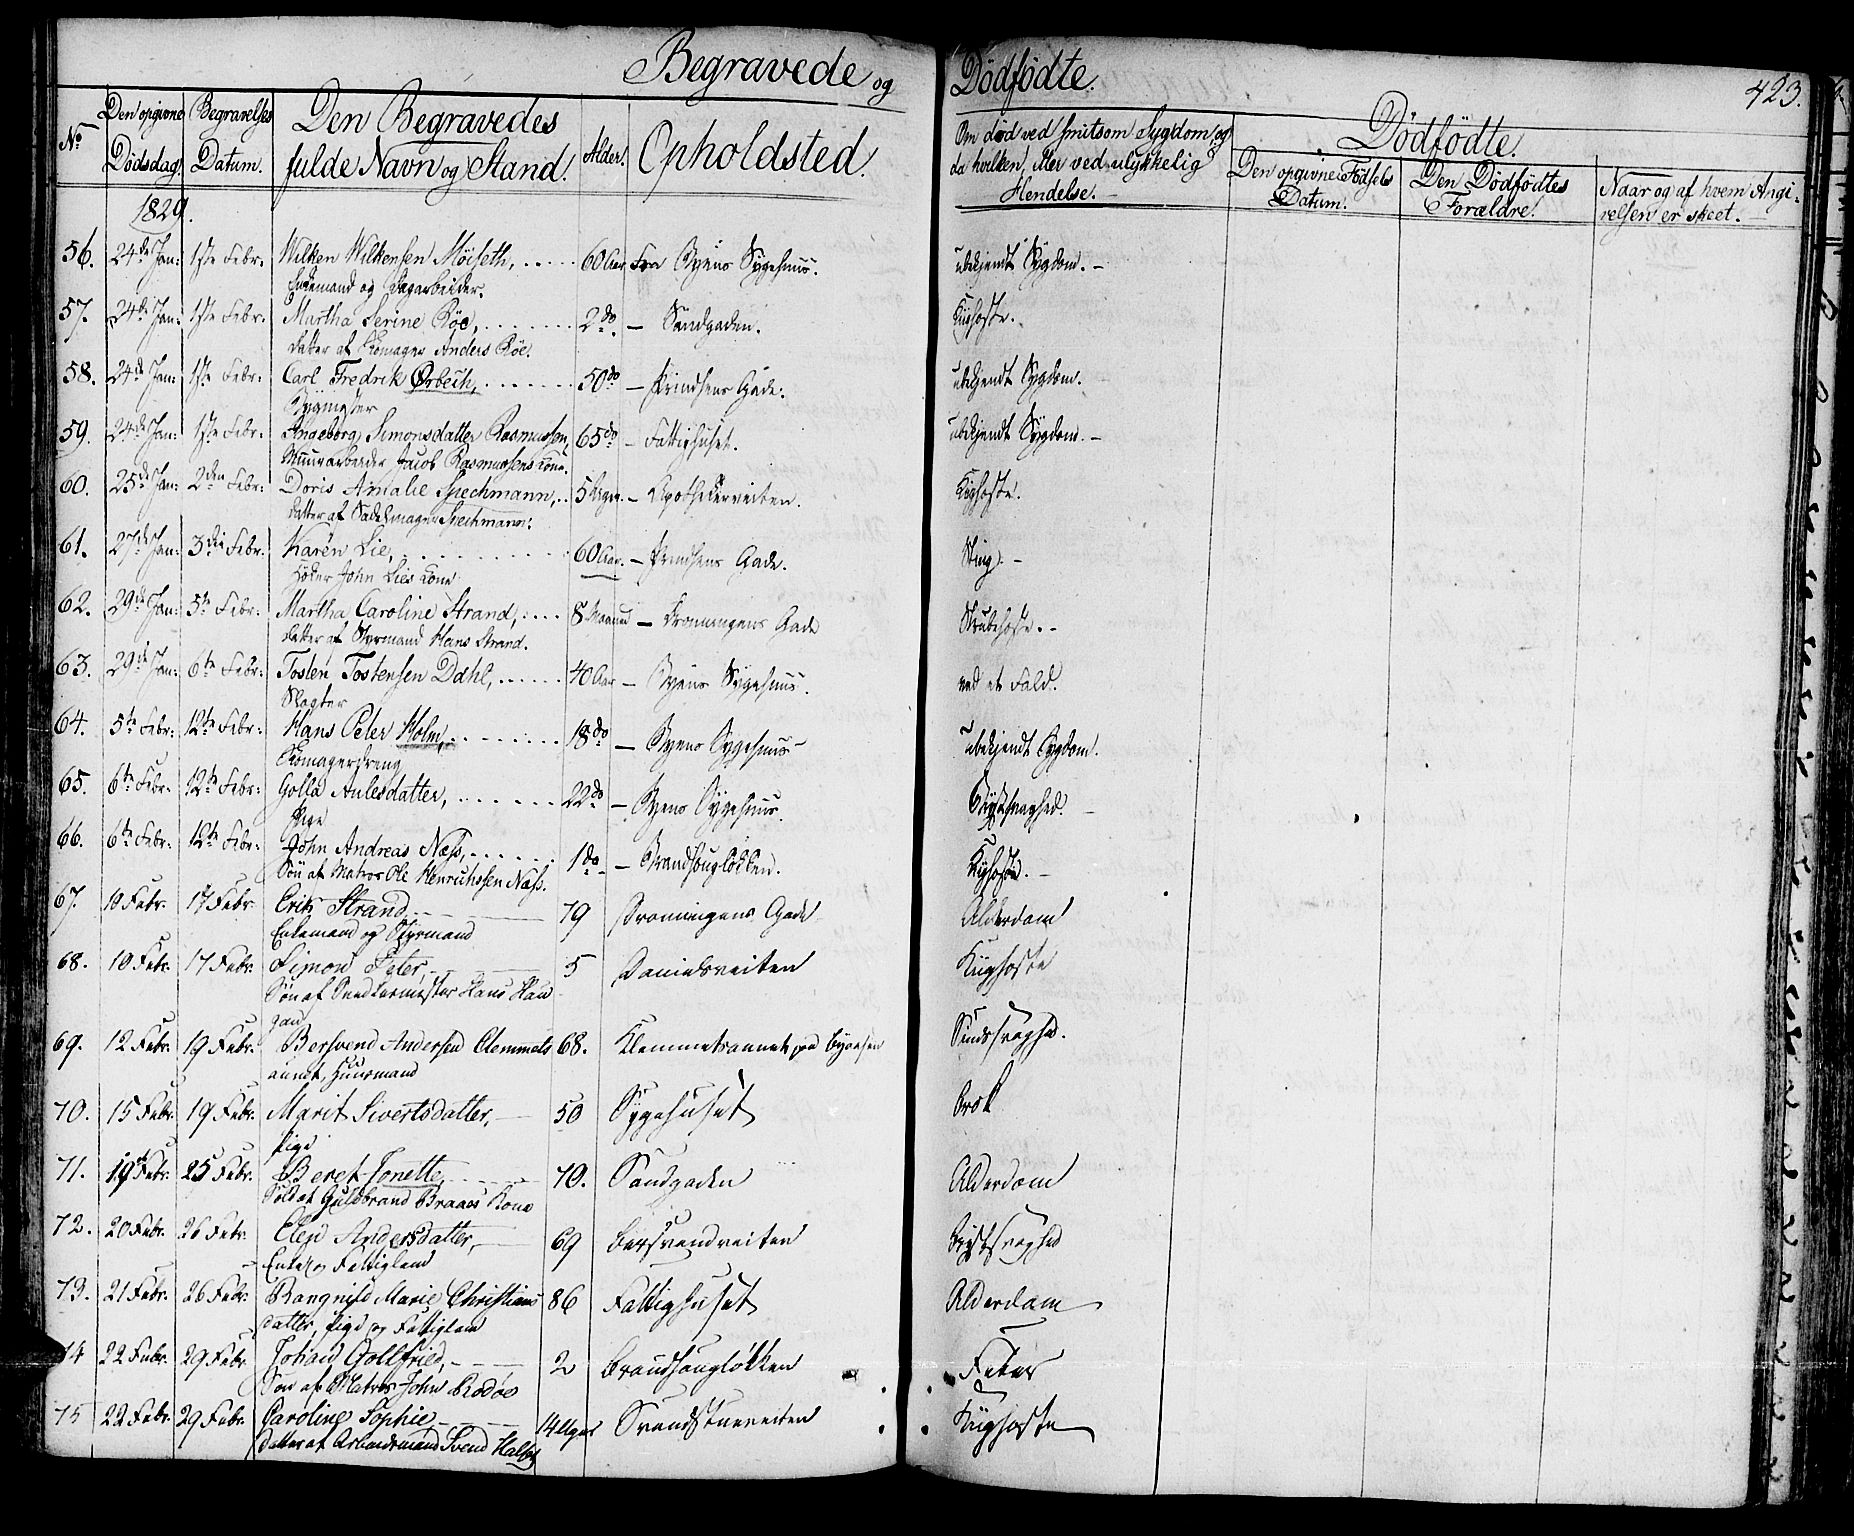 Begravede og Dödfödte.
423.
No
Den opgivne Dödsdag.
Begravelses Datum.
Den Begravedes fulde Navn og Stand.
Alder.
Opholdsted.
Om död ved smitsom Sygdom og da hvilken, eller ved ulykkelig Hendelse.
Dödfödte.
Den opgivne Födsels Datum.
Den Dödfödtes Forældre.
Naar og af hvem Angivelsen er skeet.
1829.
56. 24de Jan: 1ste Febr: Wilken Wilkensen Möiseth, 60 Aar Fra Byens Sygehuus. ubekjendt Sygdom.
Enkemand og Dagarbeider.
57. 24de Jan: 1ste Febr: Martha Serine Röe, 2 do – Sandgaden. Kighoste.
Datter af Skomager Anders Röe.
58. 24de Jan: 1ste Febr: Carl Fredrik Orbech, 50 do – Prindsens Gade. ubekjendt Sygdom.
59. 24de Jan: 1ste Febr: Ingeborg Simonsdatter Rasmussen, 65 do – Fattighuset. ubekjendt Sygdom.
Muurarbeider Jacob Rasmussens Kone.
60. 25de Jan: 2den Febr: Doris Amalie Spechmann, 5 Uger – Apothekerveiten. Kighoste.
Datter af Sadelmager Spechmann.
61. 27de Jan: 3die Febr: Karen Lie, 60 Aar. – Prindsens Gade. Sting.
Höker John Lies Kone
62. 29de Jan: 5te Febr: Martha Caroline Strand, 8 Maaned – Dronningens Gade Strubehoste.
Datter af Styrmand Hans Strand.
63. 29de Jan: 6te Febr: Tosten Tostensen Dahl, 40 Aar – Byens Sygehuus. ved et Fald.
Slagter
64. 5te Febr: 12te Febr: Hans Peter Holm, 18 do – Byens Sygehuus ubekjendt Sygdom.
Skomagerdreng
65. 6te Febr: 12te Febr: Golla Aulesdatter, 22 do – Byens Sygehuus. Brystsvaghed.
Pige
66. 6te Febr: 12te Febr: John Andreas Næss, 1 do – Brandhougløkken. Kighoste.
Sön af Matros Ole Henrichsen Næss.
67. 10 Febr. 17 Febr Erik Strand 79 Dronningens Gade Alderdom
Enkemand og Styrmand
68. 10 Febr. 17 Febr. Simon Peter, 5 Danielsveiten Kiighoste
Søn af Snedkermester Hans Haugan
69. 12 Febr. 19 Febr. Bersvend Andersen Clemmets 68. Klemmetsaunet paa Byaasen Sindssvaghed.
aunet, Huusmand
70. 15 Febr. 19 Febr. Marit Sivertsdatter, 50 Sygehuset Brok
Pige
71. 19 Febr. 25 Febr. Beret Jonette 70. Sandgaden Alderdom
Soldat Guldbrand Braaes Kone
72. 20 Febr. 26 Febr. Elen Andersdatter, 69 Bersvendveiten Brystsvaghed
Enke og Fattiglem
73. 21 Febr. 26 Febr. Rangnild Marie Christians 86 Fattighuset Alderdom
datter, Pige og Fattiglem
74 22 Febr. 29 Febr. Johan Gottfried, 2 Brandhougløkken Feber
Søn af Matros John Rodöe
75 22 Febr. 29 Febr. Caroline Sophie 14 Uger Svendstueveiten Kiighoste
Datter af Arbeidsmand Svend Halset